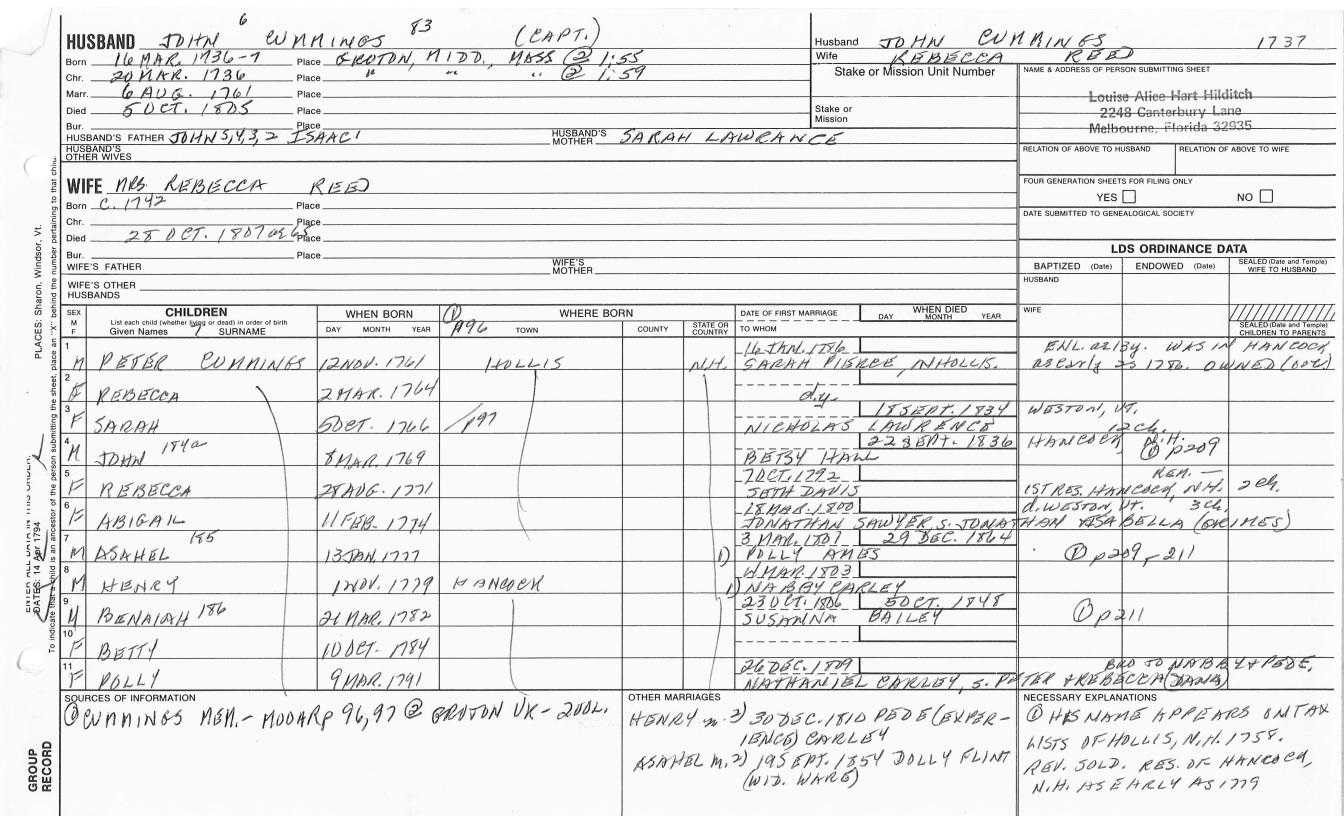 6 83
HUSBAND JOHN CUMMINGS (CAPT.)
Born 16 MAR. 1736-7 Place GROTON, MIDD., MASS @ 1:55
Chr. 20 MAR. 1736 Place " " " @ 1:59
Marr. 6 AUG. 1761 Place
Died 5 OCT. 1805 Place
Bur. Place
HUSBAND'S FATHER JOHN 5,4,3,2 ISAAC 1 HUSBAND'S MOTHER SARAH LAWRANCE
HUSBAND'S OTHER WIVES
WIFE MRS. REBECCA REED
Born C. 1742 Place
Chr. Place
Died 28 OCT. 1807 ae 65 Place
Bur. Place
WIFE'S FATHER WIFE'S MOTHER
WIFE'S OTHER HUSBANDS
Husband JOHN CUMMINGS 1737
Wife REBECCA REED
Stake or Mission Unit Number
Stake or Mission
NAME & ADDRESS OF PERSON SUBMITTING SHEET
Louise Alice Hart Hilditch
2248 Canterbury Lane
Melbourne, Florida 32935
RELATION OF ABOVE TO HUSBAND RELATION OF ABOVE TO WIFE
FOUR GENERATION SHEETS FOR FILING ONLY
YES NO
DATE SUBMITTED TO GENEALOGICAL SOCIETY
LDS ORDINANCE DATA
BAPTIZED (Date) ENDOWED (Date) SEALED (Date and Temple) WIFE TO HUSBAND
HUSBAND
WIFE
SEALED (Date and Temple) CHILDREN TO PARENTS
SEX M F CHILDREN WHEN BORN WHERE BORN DATE OF FIRST MARRIAGE WHEN DIED
List each child (whether living or dead) in order of birth
Given Names 7 SURNAME DAY MONTH YEAR ① p96 TOWN COUNTY STATE OR COUNTRY TO WHOM DAY MONTH YEAR
16 JAN. 1786 ENL. WAS IN HANCOCK,
1 M PETER CUMMINGS 12 NOV. 1761 HOLLIS N.H. SARAH PIERCE, N HOLLIS. as early as 1786. OWNED
2 F REBECCA 2 MAR. 1764 d.y.
18 SEPT. 1834 WESTON, VT.
3 F SARAH 5 OCT. 1766 p97 NICHOLAS LAWRENCE 12 ch.
22 SEPT. 1836 HANCOCK, N.H.
4 M JOHN 184a 8 MAR. 1769 BETSY HALL ① p209
7 OCT. 1792 REM. —
5 F REBECCA 28 AUG. 1771 SETH DAVIS 1ST RES. HANCOCK, N.H. 2 ch.
18 MAR. 1800 d. WESTON, VT. 3 ch.
6 F ABIGAIL 11 FEB. 1774 JONATHAN SAWYER, S. JONATHAN + ISABELLA (GRIMES)
3 MAR. 1801 29 DEC. 1864
7 M ASAHEL 185 13 JAN. 1777 1) POLLY AMES ① p209-211
MAR. 1803
8 M HENRY 1 NOV. 1779 HANCOCK 1) NABBY CARLEY
23 OCT. 1806 5 OCT. 1848
9 M BENAIAH 186 21 MAR. 1782 SUSANNA BAILEY ① p211
10 F BETTY 10 OCT. 1784
26 DEC. 1809 BRO TO NABBY + PEDE,
11 F POLLY 9 MAR. 1791 NATHANIEL CARLEY, S. PETER + REBECCA (DANA)
SOURCES OF INFORMATION
① CUMMINGS MEM. - MOOAR p 96, 97 @ GROTON VR - 200L.
OTHER MARRIAGES
HENRY m. 2) 30 DEC. 1810 PEDE (EXPER-
IENCE) CARLEY
ASAHEL m. 2) 19 SEPT. 1854 DOLLY FLINT
(WID. WARE)
NECESSARY EXPLANATIONS
① HIS NAME APPEARS ON TAX
LISTS OF HOLLIS, N.H. 1758.
REV. SOLD. RES. OF HANCOCK,
N.H. AS EARLY AS 1779
PLACES: Sharon, Windsor, Vt.
ENTER ALL DATA IN THIS ORDER:
DATES: 14 Apr 1794
To indicate that a child is an ancestor of the person submitting the sheet, place an "X" behind the number pertaining to that child.
GROUP RECORD